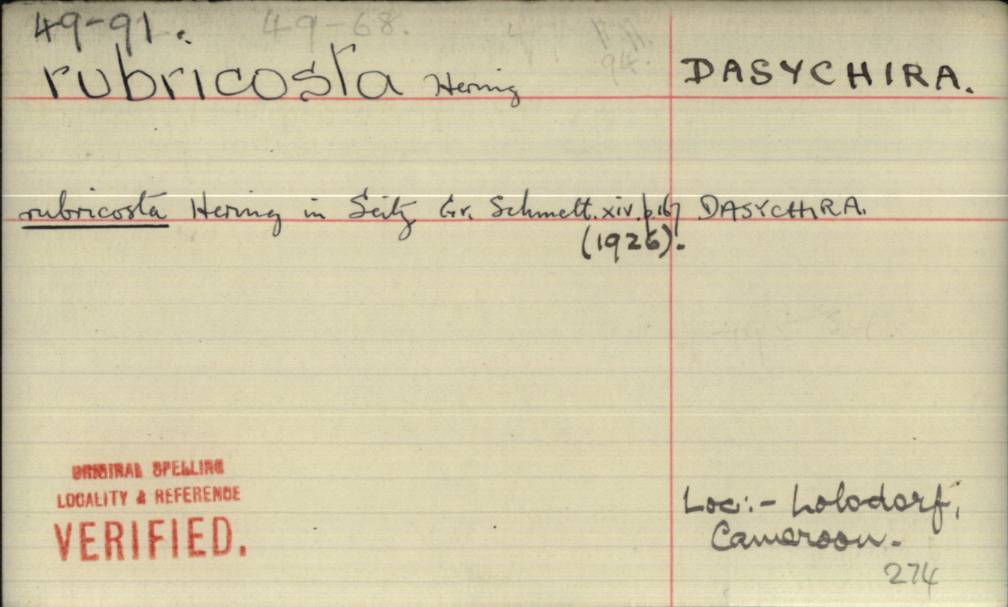 49-91. 49-68.
94.
rubricosta Hering DASYCHIRA.
rubricosta Hering in Seitz Gr. Schmett. xiv. p. 167 DASYCHIRA.
(1926).
ORIGINAL SPELLING
LOCALITY & REFERENCE
VERIFIED.
Loc:- Lolodorf,
Cameroon.
274